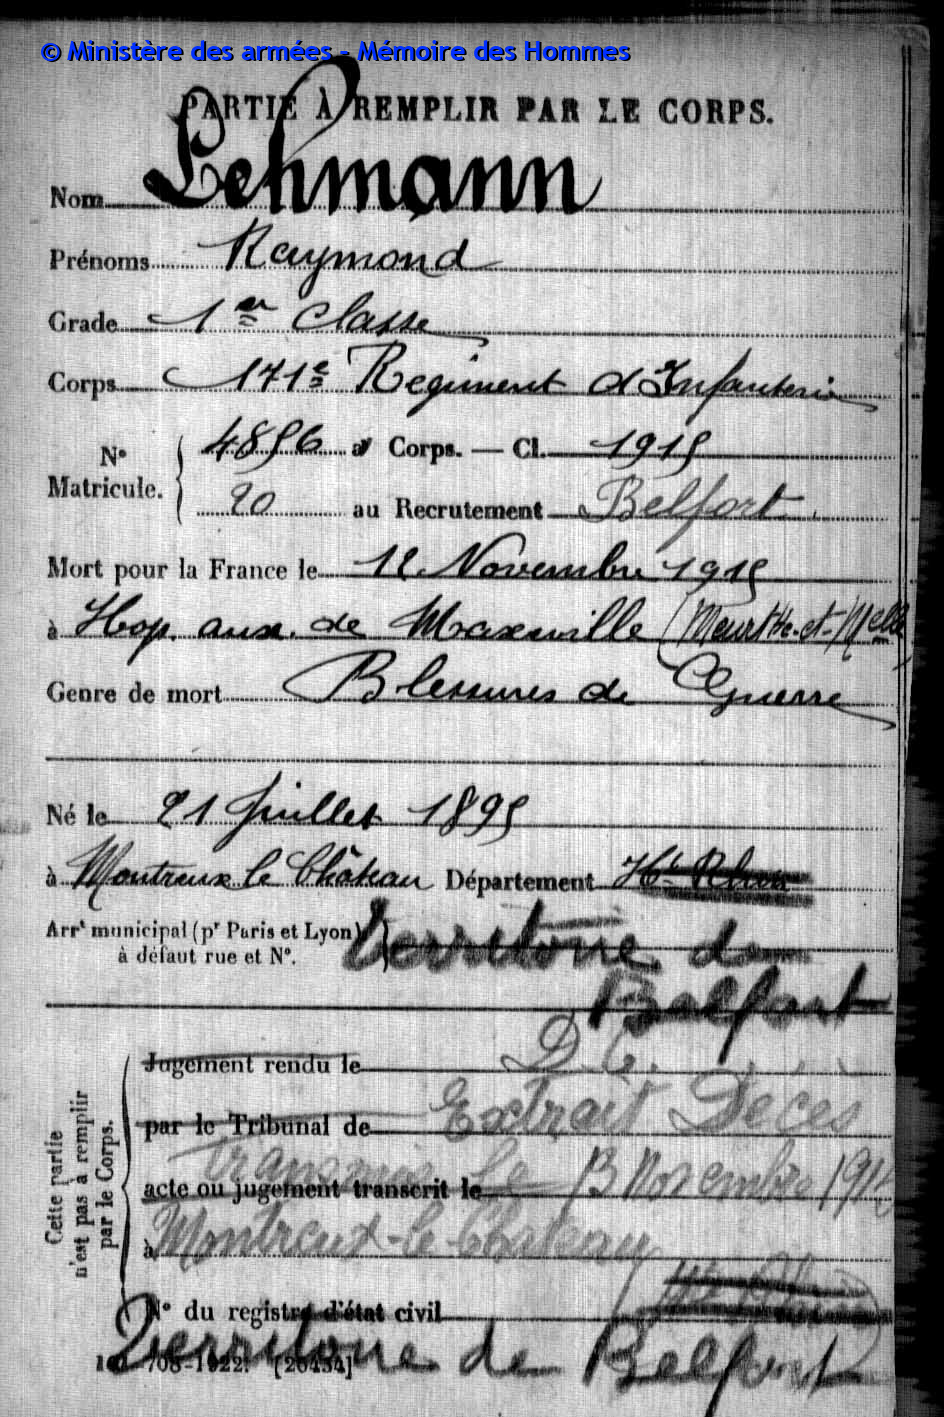 © Ministère des armées - Mémoire des Hommes
PARTIE À REMPLIR PAR LE CORPS.
Nom Lehmann
Prénoms Raymond
Grade 1er classe
Corps 171e Régiment d'Infanterie
N° Matricule. 4856 au Corps. — Cl. 1915
20 au Recrutement Belfort
Mort pour la France le 12 Novembre 1915
à Hop. aux. de Maxeville (Meurthe-et-Melle)
Genre de mort Blessures de Guerre
Né le 21 Juillet 1895
à Montreux le Château Département Ht Rhin
Arrt municipal (pr Paris et Lyon)
à défaut rue et N°.
Territoire de
Belfort
Cette partie n'est pas à remplir par le Corps.
Jugement rendu le D.C.
par le Tribunal de Extrait Décès
acte ou jugement transcrit le transmis le 13 Novembre
à Montreux-le-Château
N° du registre d'état civil
Territoire de Belfort
708-1922. [26434]